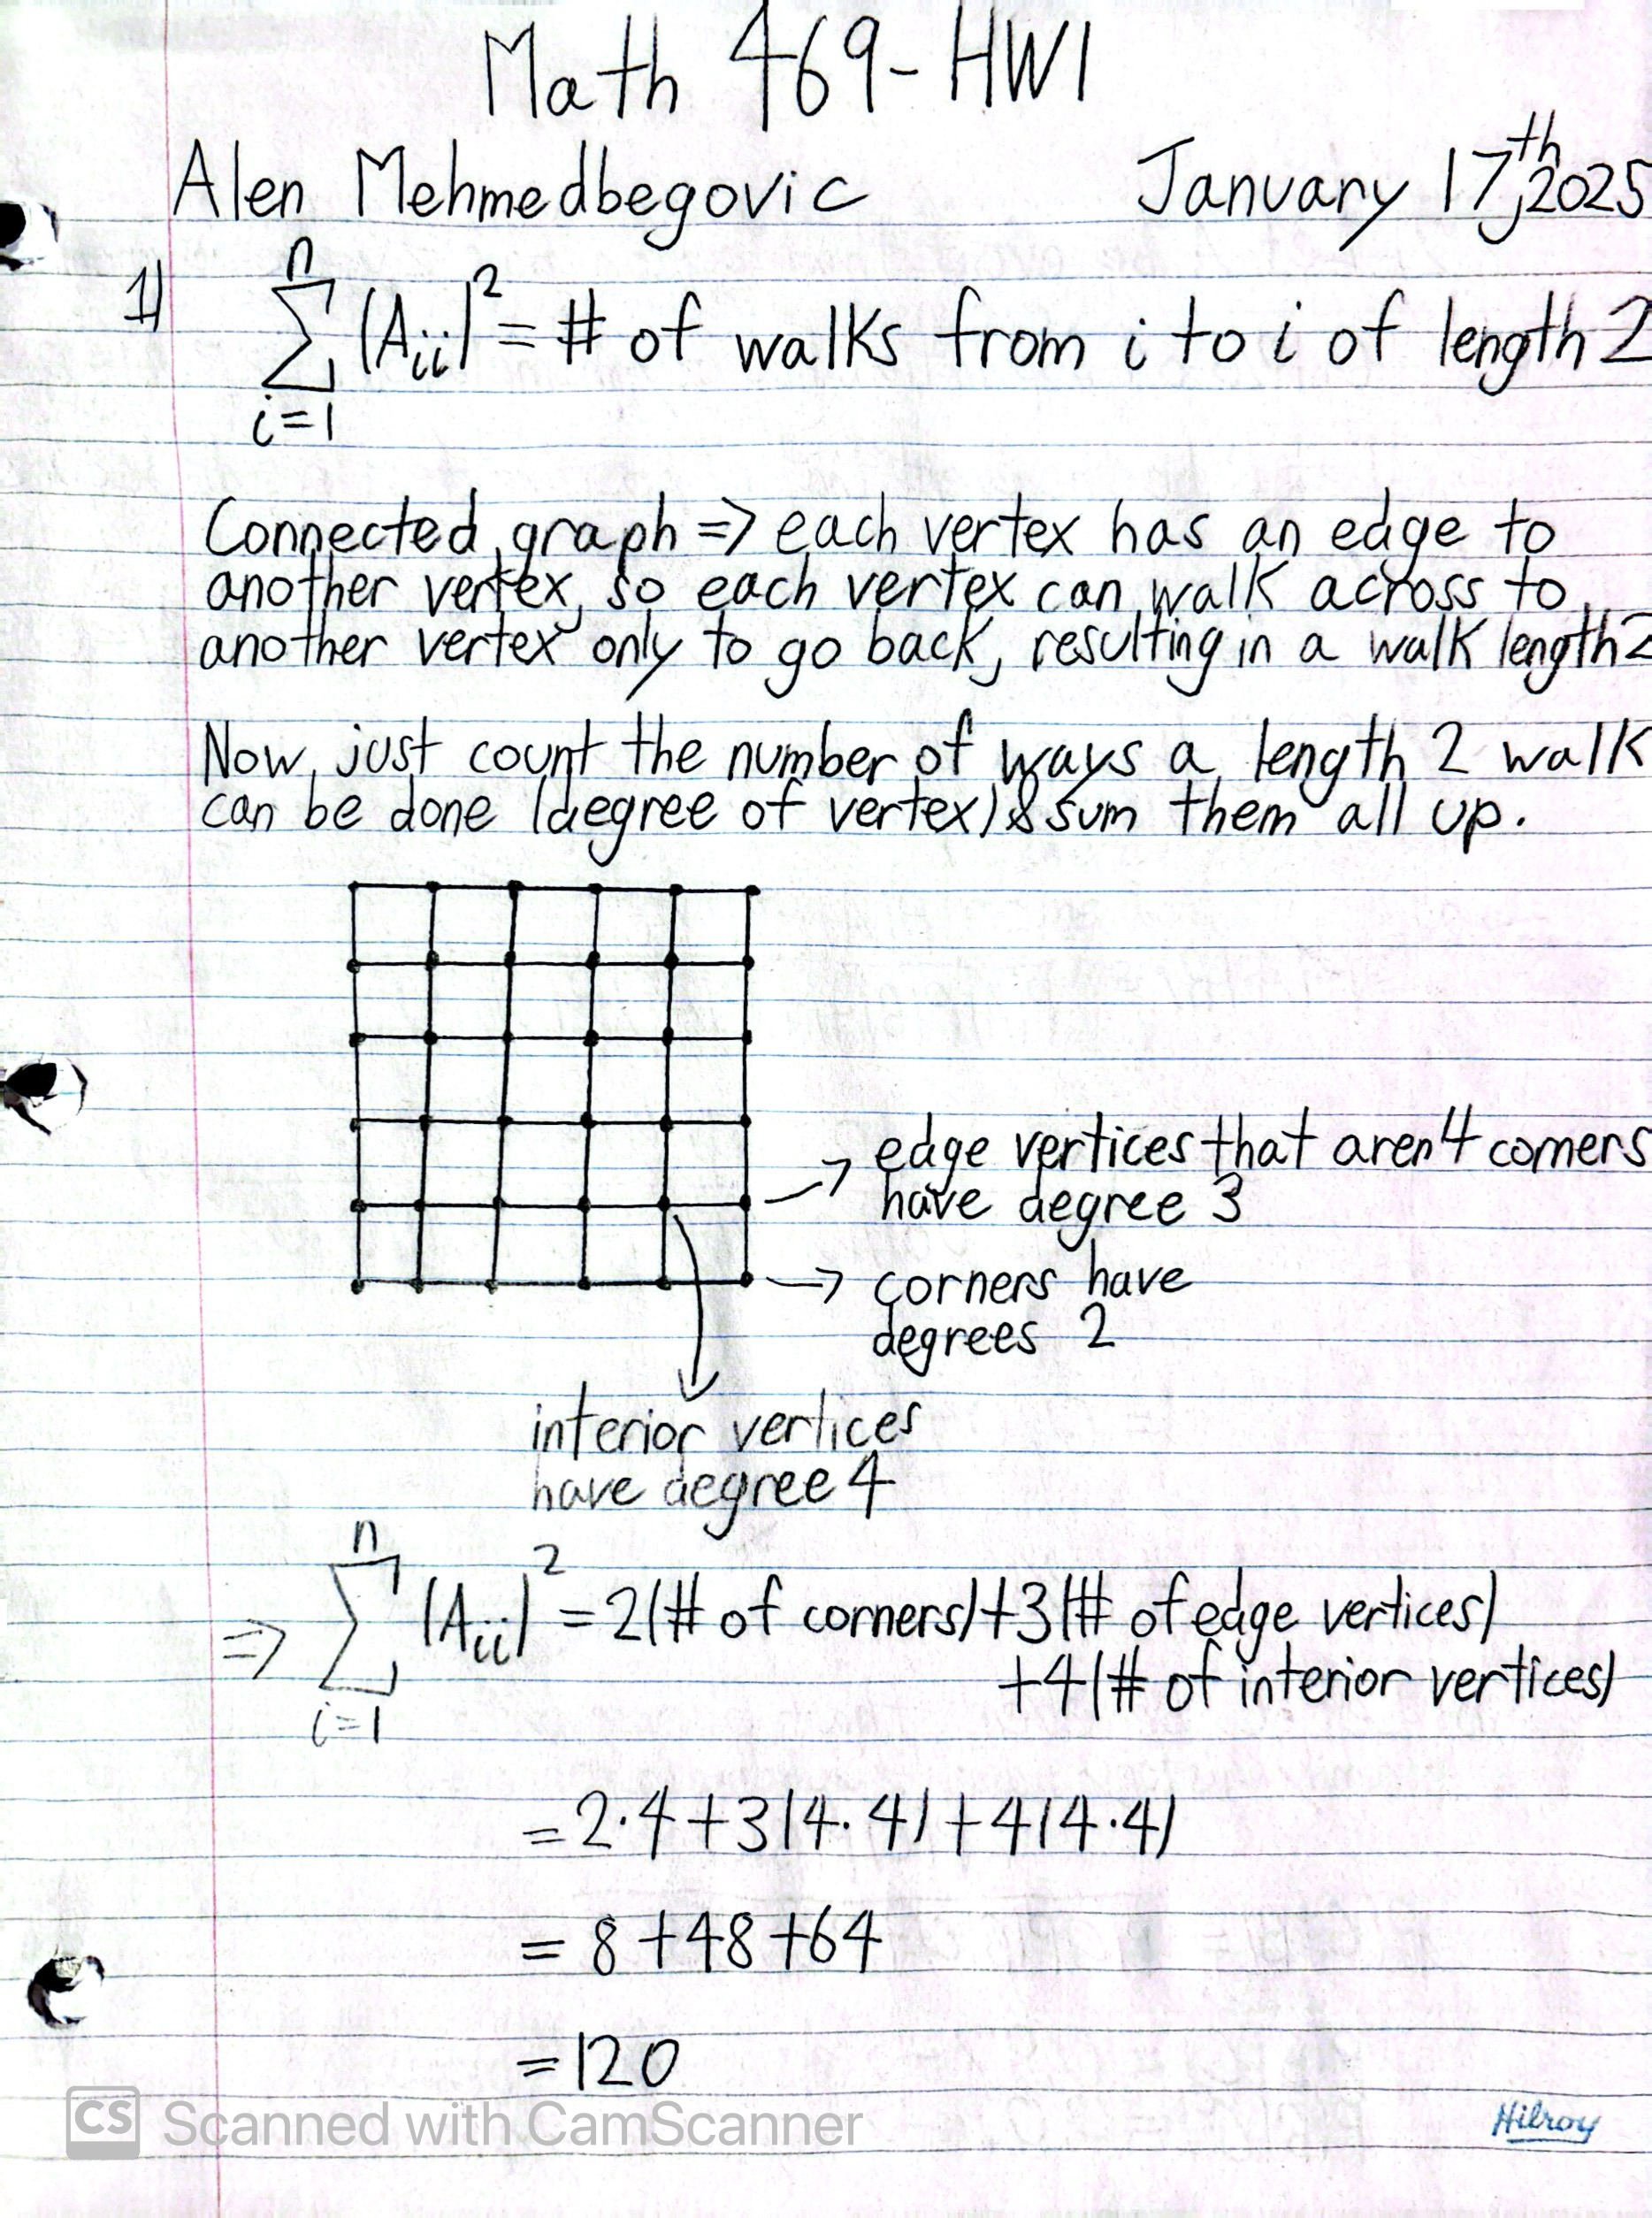 Math 469-HW1
Alen Mehmedbegovic January 17th, 2025
1) n∑i=1 (Aii)² = # of walks from i to i of length 2
Connected graph => each vertex has an edge to
another vertex, so each vertex can walk across to
another vertex only to go back, resulting in a walk length 2
Now, just count the number of ways a length 2 walk
can be done (degree of vertex) & sum them all up.
→ edge vertices that aren't corners
have degree 3
→ corners have
degrees 2
interior vertices
have degree 4
=> n∑i=1 (Aii)² = 2(# of corners)+3(# of edge vertices)
+4(# of interior vertices)
=2·4+3(4·4)+4(4·4)
= 8+48+64
=120
CS Scanned with CamScanner
Hilroy